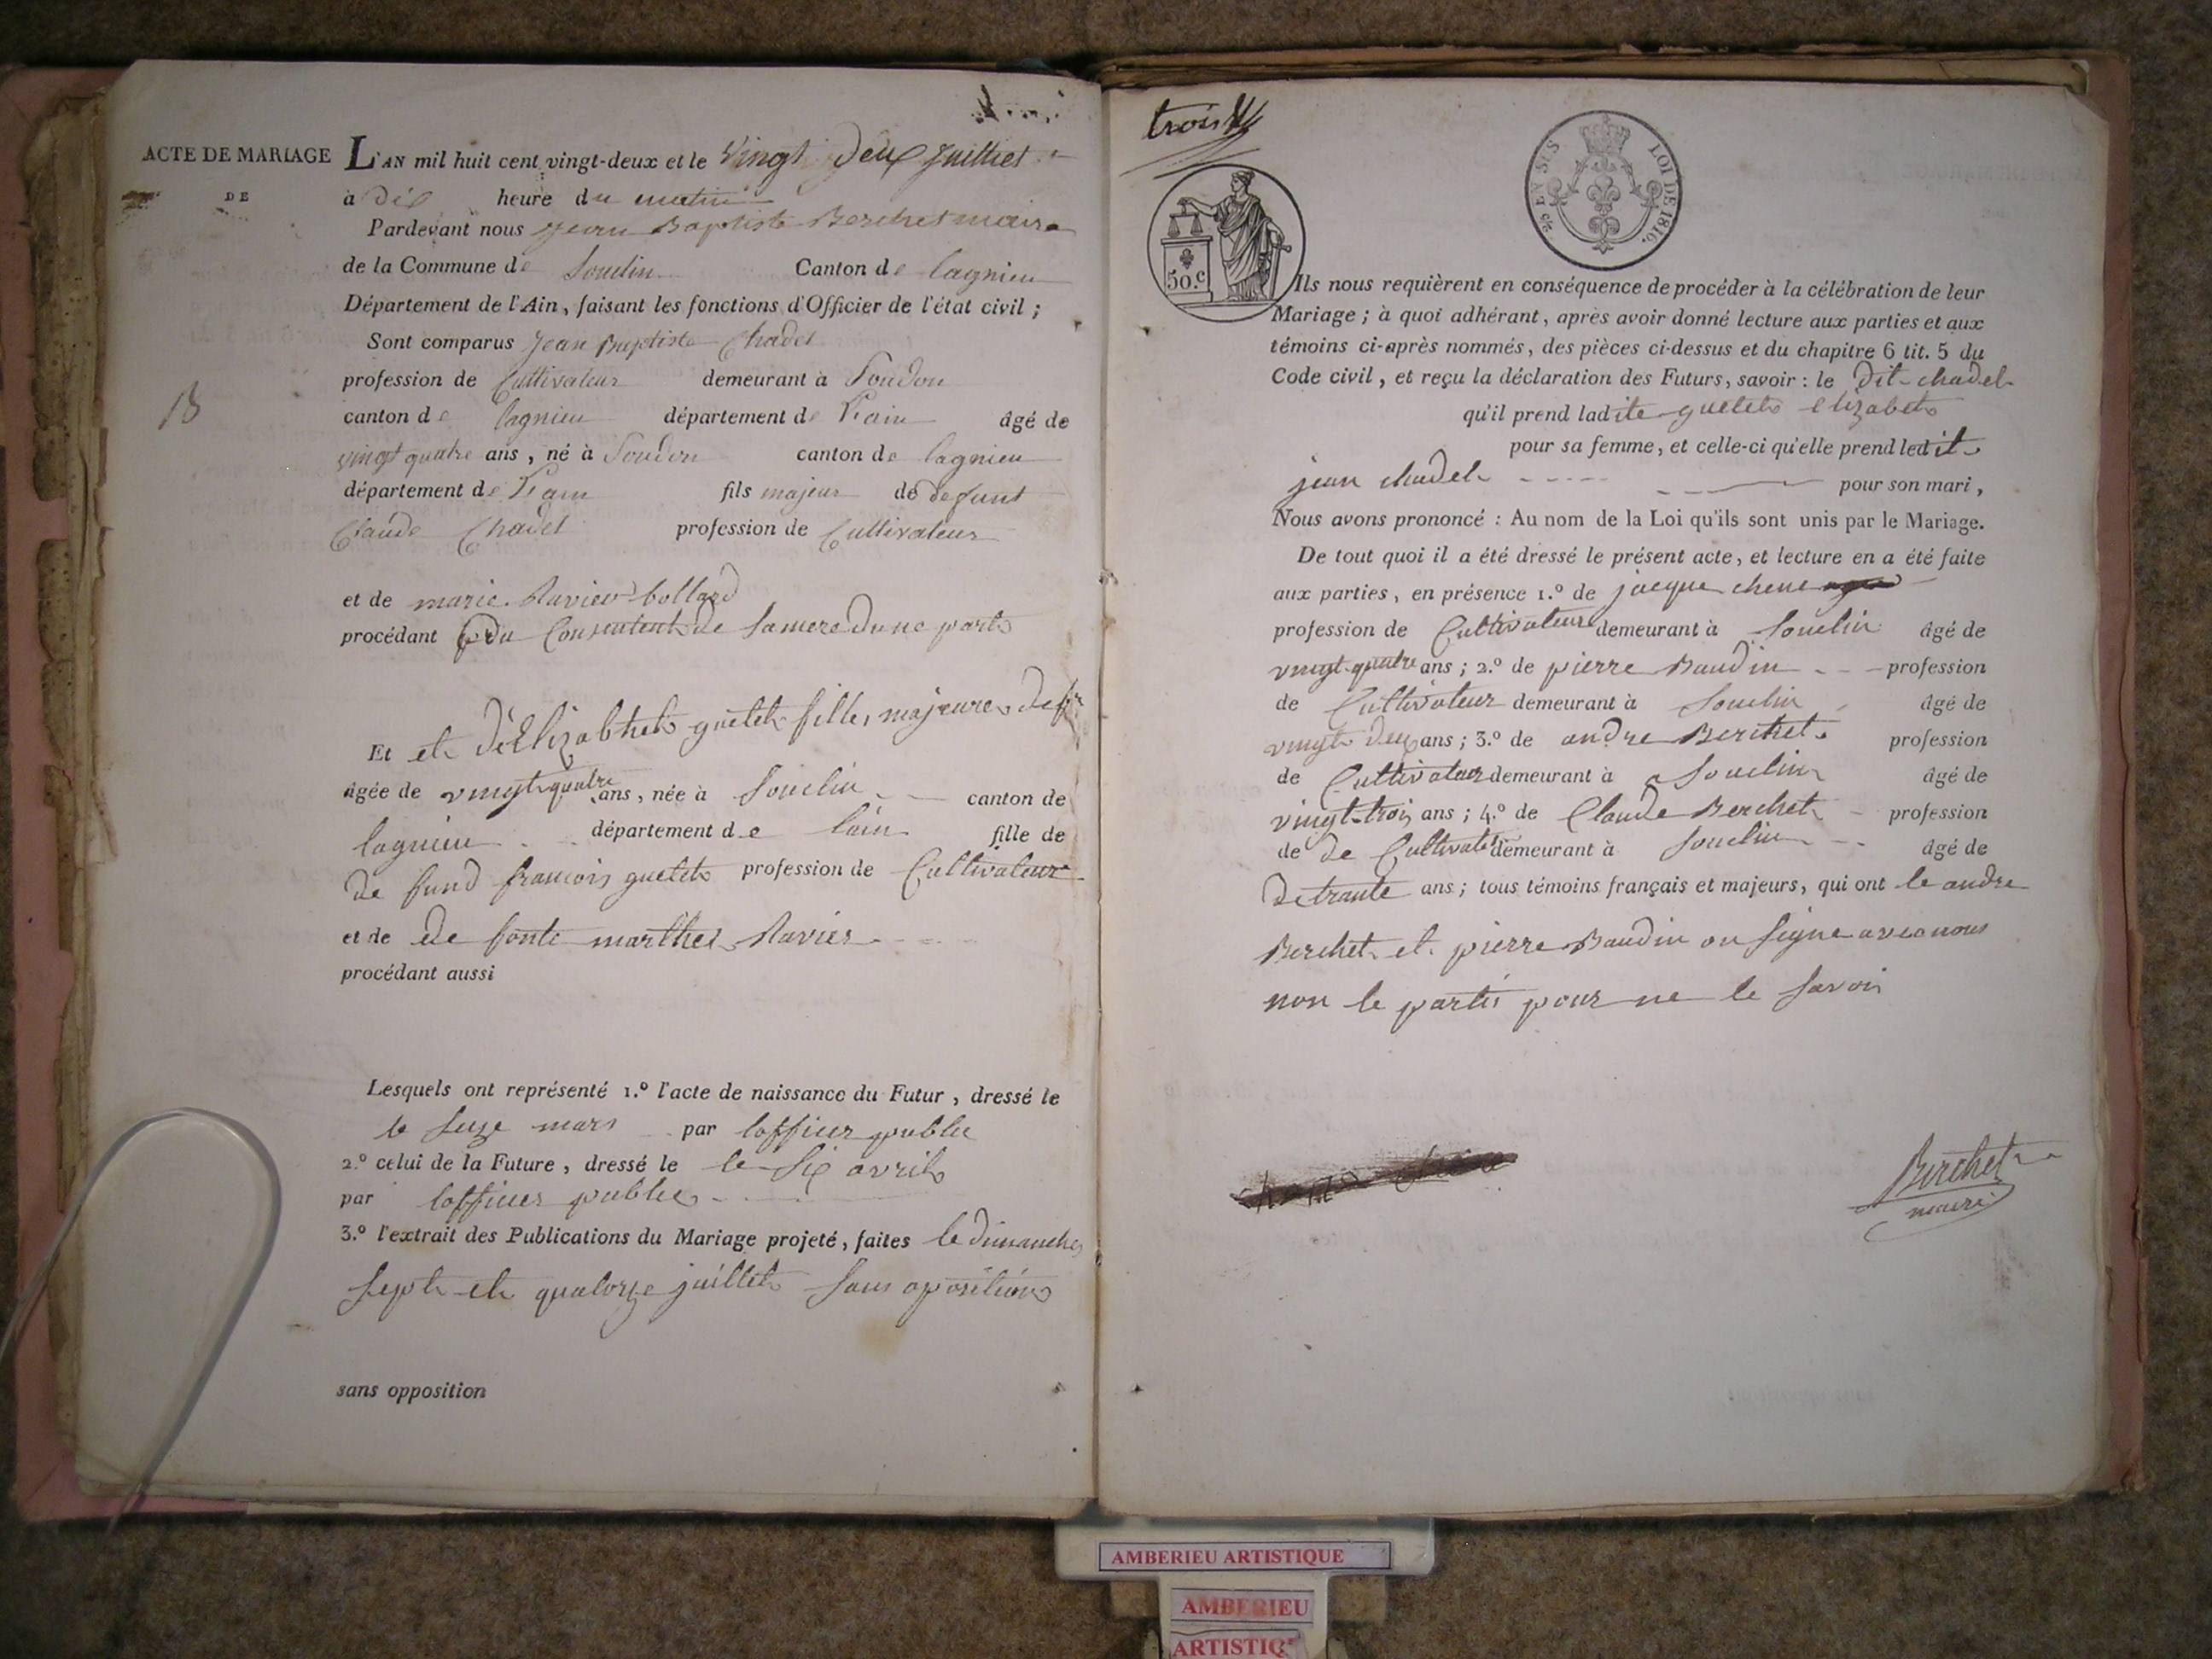 ACTE DE MARIAGE
DE
18
L'AN mil huit cent vingt-deux et le vingt deux juilliet
à dix heure du matin
Pardevant nous jean Baptiste Berchet maire
de la Commune de Souclin Canton de lagnieu
Département de l'Ain, faisant les fonctions d'Officier de l'état civil ;
Sont comparus Jean Baptiste Chadel
profession de Cultivateur demeurant à Soudon
canton de lagnieu département de l'ain âgé de
vingt quatre ans, né à Soudon canton de lagnieu
département de l'ain fils majeur de defunt
Claude Chadel profession de Cultivateur
et de marie Ravier bollard
procédant du Consentent de sa mere dune part
Et et de Elizabhet guetet fille majeure
âgée de vingt quatre ans, née à Souclin canton de
lagnieu département de lain fille de
de fund francois guetet profession de Cultivateur
et de de fonte marthe Ravier
procédant aussi
Lesquels ont représenté 1.º l'acte de naissance du Futur, dressé le
le seize mars par lofficier public
2.º celui de la Future, dressé le le six avril
par lofficier public
3.º l'extrait des Publications du Mariage projeté, faites le dimanche
sept et quatorze juillet sans oposition
sans opposition
trois
50.c
EN SUS
LOI DE 1816.
Ils nous requièrent en conséquence de procéder à la célébration de leur
Mariage ; à quoi adhérant, après avoir donné lecture aux parties et aux
témoins ci-après nommés, des pièces ci-dessus et du chapitre 6 tit. 5 du
Code civil, et reçu la déclaration des Futurs, savoir : le dit chadel
qu'il prend ladite guetet elizabet
pour sa femme, et celle-ci qu'elle prend ledit
jean chadel pour son mari,
Nous avons prononcé : Au nom de la Loi qu'ils sont unis par le Mariage.
De tout quoi il a été dressé le présent acte, et lecture en a été faite
aux parties, en présence 1.º de jacque chene
profession de Cultivateur demeurant à Souclin âgé de
vingt quatre ans ; 2.º de pierre Baudin profession
de Cultivateur demeurant à Souclin âgé de
vingt deux ans ; 3.º de andre Berchet profession
de Cultivateur demeurant à Souclin âgé de
vingt-trois ans ; 4.º de Claude Berchet profession
de de Cultivateur demeurant à Souclin âgé de
de trante ans ; tous témoins français et majeurs, qui ont le andre
Berchet et pierre Baudin on signe avec nous
non le partis pour ne le savoir
Berchet
maire
AMBERIEU ARTISTIQUE
AMBERIEU
ARTISTIQ